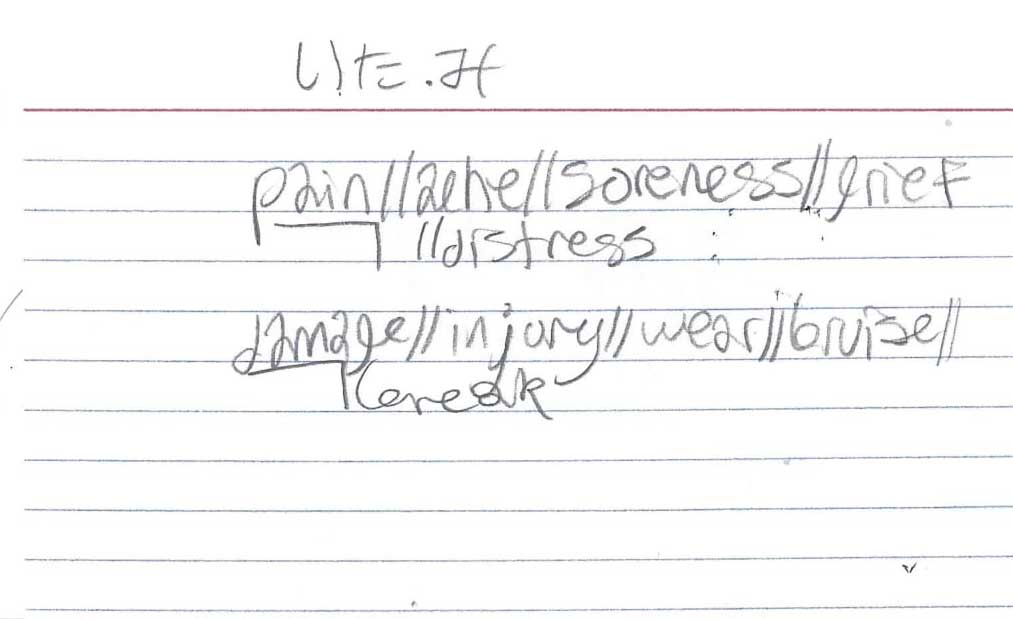 いた.み
pain//ache//soreness//grief
//distress
damage//injury//wear//bruise//
break